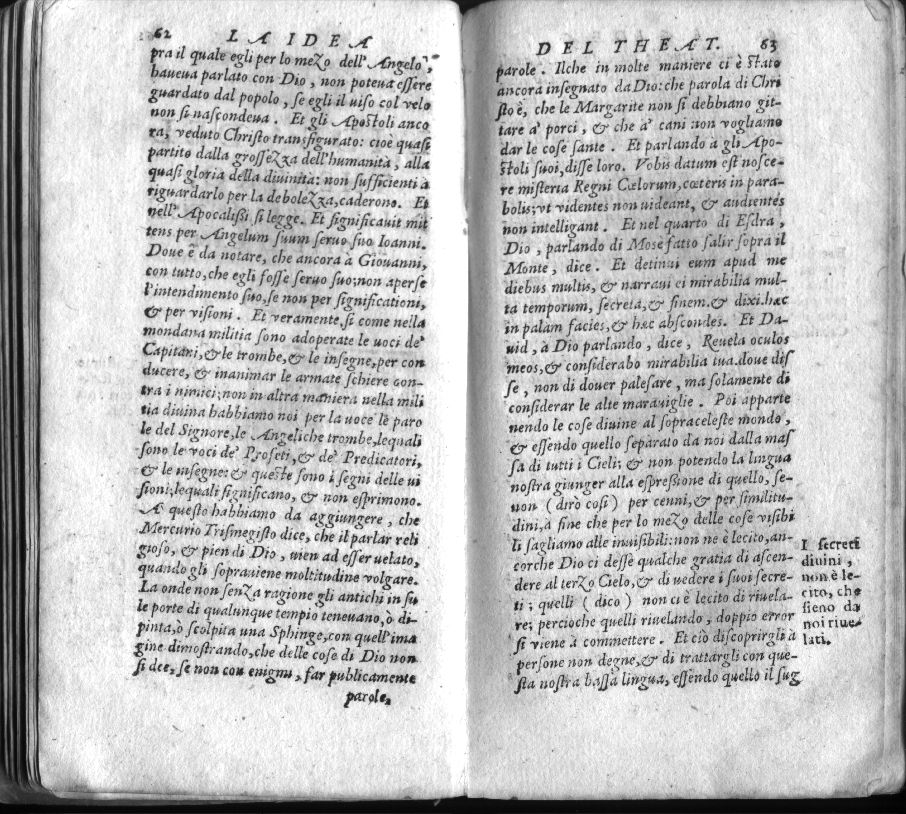 62 LA IDEA
pra il quale egli per lo mezo dell'Angelo,
haueua parlato con Dio, non poteua essere
guardato dal popolo, se egli il uiso col velo
non si nascondeua. Et gli Apostoli anco
ra, veduto Christo transfigurato: cioè quasi
partito dalla grossezza dell'humanità, alla
quasi gloria della diuinità: non sufficienti a
riguardarlo per la debolezza, caderono. Et
nell'Apocalissi si legge. Et significauit mit
tens per Angelum suum seruo suo Ioanni.
Doue è da notare, che ancora à Giouanni,
con tutto, che egli fosse seruo suo; non aperse
l'intendimento suo, se non per significationi,
& per visioni. Et veramente, si come nella
mondana militia sono adoperate le uoci de'
Capitani, & le trombe, & le insegne, per con
ducere, & inanimar le armate schiere con-
tra i nimici; non in altra maniera nella mili
tia diuina habbiamo noi per la uoce le paro
le del Signore, le Angeliche trombe, lequali
sono le voci de' Profeti, & de' Predicatori,
& le insegne: & queste sono i segni delle ui
sioni; lequali significano, & non esprimono.
A' questo habbiamo da aggiungere, che
Mercurio Trismegisto dice, che il parlar reli
gioso, & pien di Dio, uien ad esser uelato,
quando gli soprauiene moltitudine volgare.
La onde non senza ragione gli antichi in su
le porte di qualunque tempio teneuano, ò di-
pinta, ò scolpita una Sphinge, con quell'ima
gine dimostrando, che delle cose di Dio non
si dee, se non con enigmi, far publicamente
parole.
DEL THEAT. 63
parole. Ilche in molte maniere ci è stato
ancora insegnato da Dio: che parola di Chri
sto è, che le Margarite non si debbiano git-
tare a' porci, & che a' cani non vogliamo
dar le cose sante. Et parlando à gli Apo-
stoli suoi, disse loro. Vobis datum est nosce-
re misteria Regni Cœlorum, cœteris in para-
bolis; vt videntes non uideant, & audientes
non intelligant. Et nel quarto di Esdra,
Dio, parlando di Mosè fatto salir sopra il
Monte, dice. Et detinui eum apud me
diebus multis, & narraui ei mirabilia mul-
ta temporum, secreta, & finem. & dixi. hæc
in palam facies, & hæc abscondes. Et Da-
uid, à Dio parlando, dice, Reuela oculos
meos, & considerabo mirabilia tua. doue dis
se, non di douer palesare, ma solamente di
considerar le alte marauiglie. Poi apparte
nendo le cose diuine al sopraceleste mondo,
& essendo quello separato da noi dalla mas
sa di tutti i Cieli; & non potendo la lingua
nostra giunger alla espressione di quello, se-
non (dirò così) per cenni, & per similitu-
dini, à fine che per lo mezo delle cose visibi
li sagliamo alle inuisibili: non ne è lecito, an-
corche Dio ci desse qualche gratia di ascen-
dere al terzo Cielo, & di uedere i suoi secre-
ti; quelli (dico) non ci è lecito di riuela-
re; percioche quelli riuelando, doppio error
si viene à commettere. Et ciò discoprirgli à
persone non degne, & di trattargli con que-
sta nostra bassa lingua, essendo quello il sug
I secreti
diuini,
non è le-
cito, che
sieno da
noi riue-
lati.